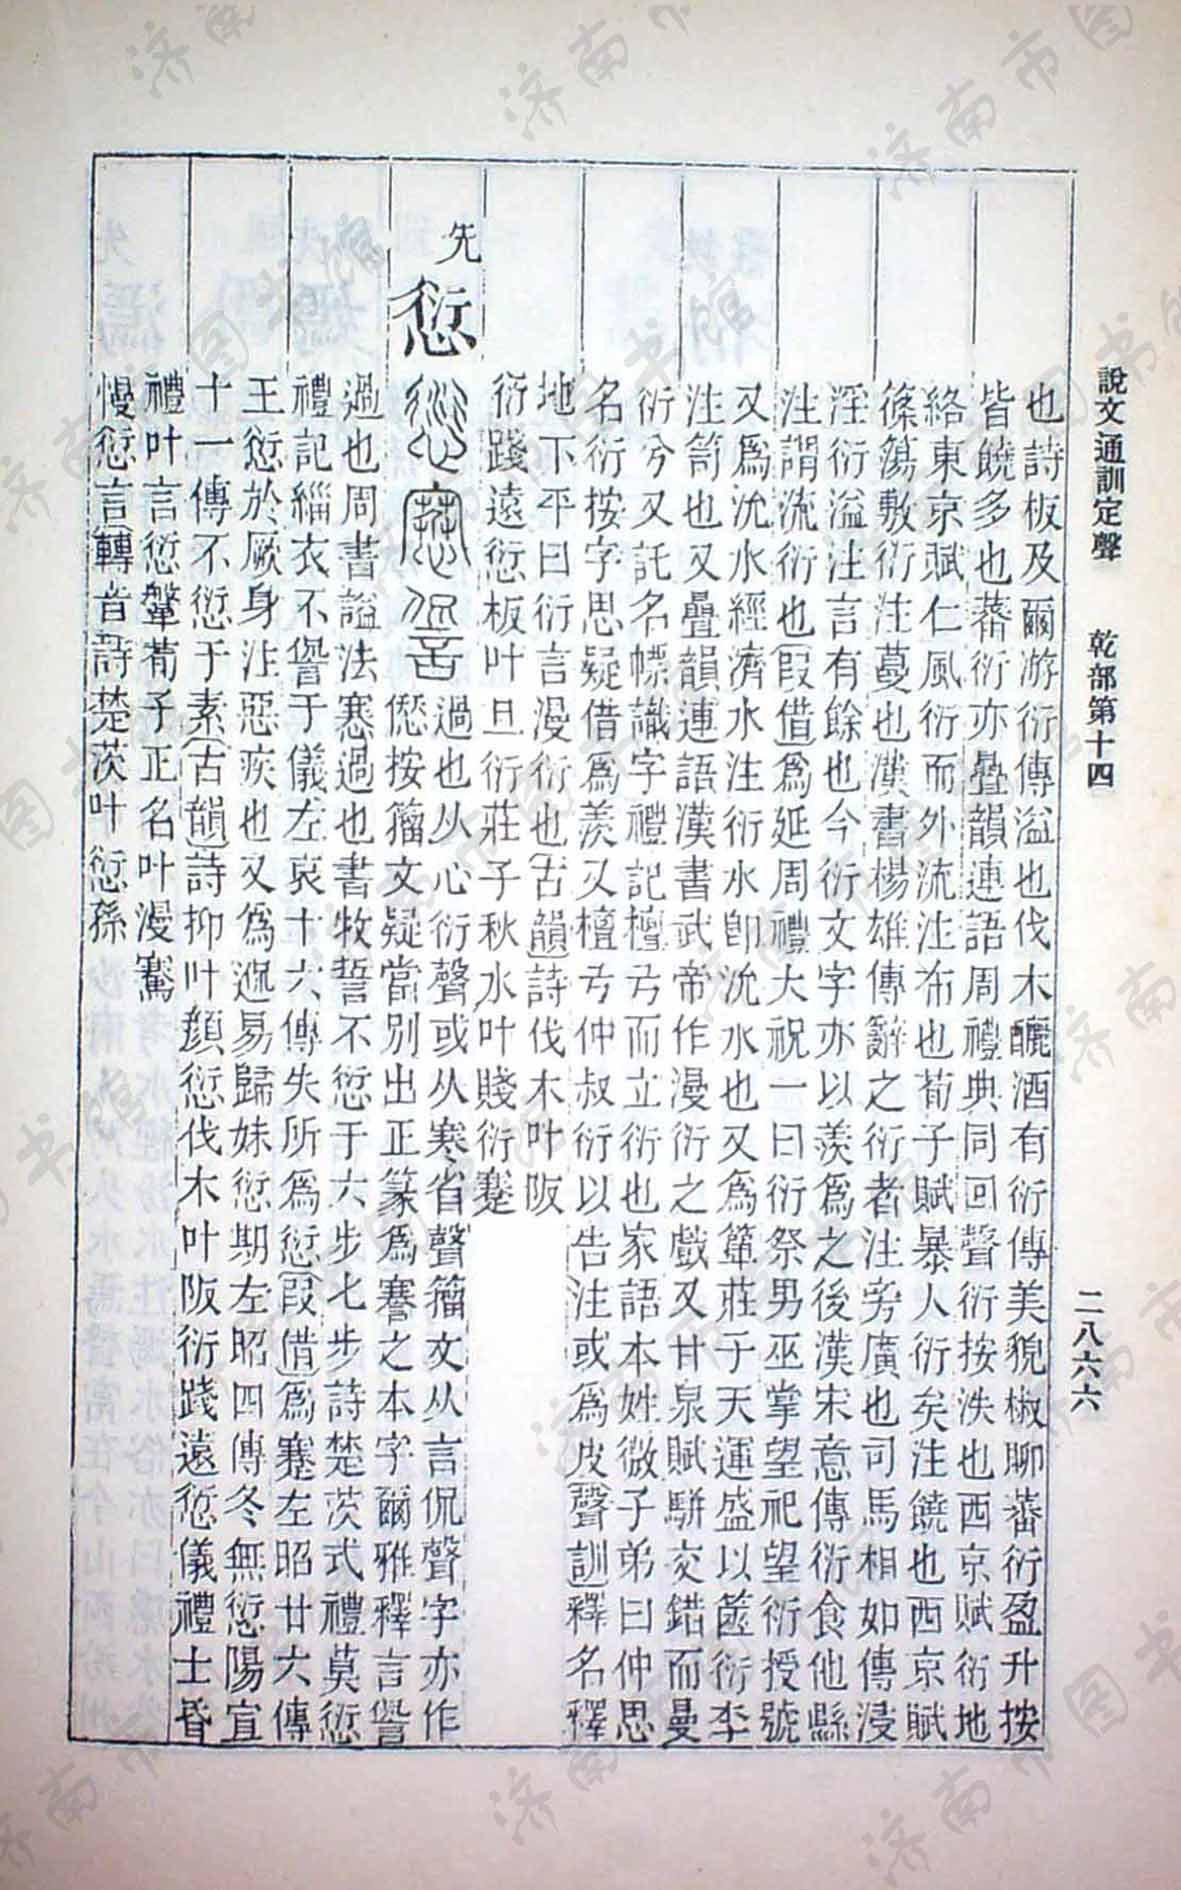 說文通訓定聲 乾部第十四 二八六六
也詩板及爾游衍傳溢也伐木釃酒有衍傳美貌椒聊蕃衍盈升按
皆饒多也蕃衍亦疊韻連語周禮典同回聲衍按泆也西京賦衍地
絡東京賦仁風衍而外流注布也荀子賦暴人衍矣注饒也西京賦
篠簜敷衍注蔓也漢書楊雄傳辭之衍者注旁廣也司馬相如傳浸
淫衍溢注言有餘也今衍文字亦以羨爲之後漢宋意傳衍食他縣
注謂流衍也叚借爲延周禮大祝一曰衍祭男巫掌望祀望衍授號
又爲沇水經濟水注衍水卽沇水也又爲簞莊子天運盛以篋衍李
注笥也又疊韻連語漢書武帝作漫衍之戲又甘泉賦駢交錯而曼
衍兮又託名幖識字禮記檀弓而立衍也家語本姓微子弟曰仲思
名衍按字思疑借爲羨又檀弓仲叔衍以告注或爲皮聲訓釋名釋
地下平曰衍言漫衍也古韻詩伐木叶阪
衍踐遠愆板叶旦衍莊子秋水叶賤衍蹇
先
愆 過也从心衍聲或从寒省聲籀文从言侃聲字亦作
㥶按籀文疑當別出正篆爲謇之本字爾雅釋言諐
過也周書謚法寋過也書牧誓不愆于六步七步詩楚茨式禮莫愆
禮記緇衣不諐于儀左哀十六傳失所爲愆叚借爲蹇左昭廿六傳
王愆於厥身注惡疾也又爲遐易歸妹愆期左昭四傳冬無愆陽宣
十一傳不愆于素古韻詩抑叶顏愆伐木叶阪衍踐遠愆儀禮士昏
禮叶言愆鞶荀子正名叶漫騫
慢愆言轉音詩楚茨叶愆孫